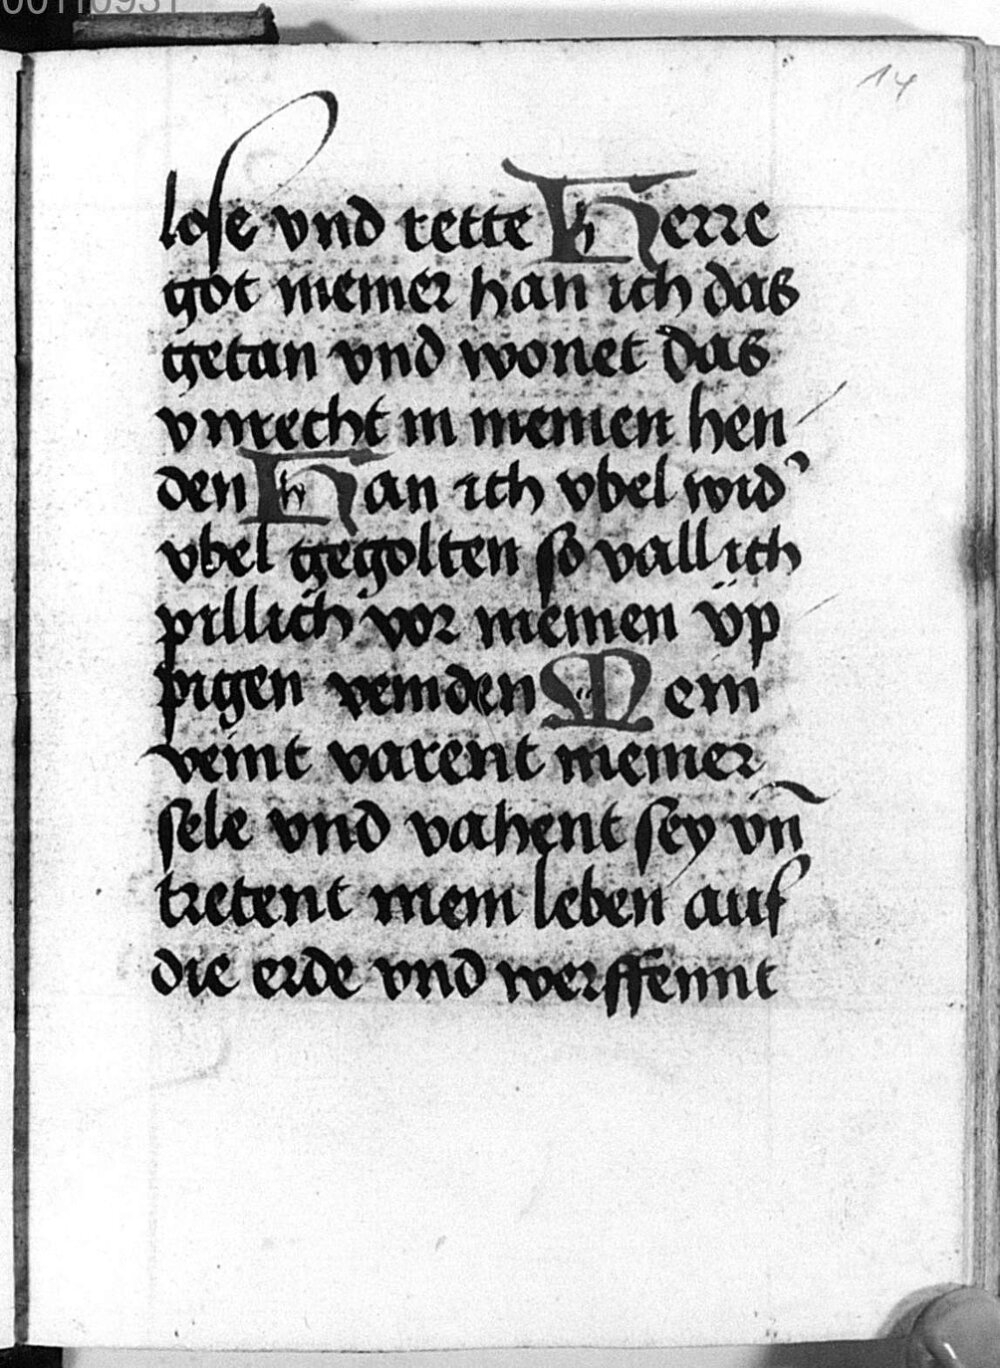 14
lose vnd rette Herre
got meiner han ich das
getan vnd wonet das
vnrecht in meinen hen
den Han ich vbel wid'
vbel gegolten so vall ich
pillich vor meinen üp
pigen veinden Mein
veint varent meiner
sele vnd vahent sey vn̄
tretent mein leben auf
die erde vnd werffennt